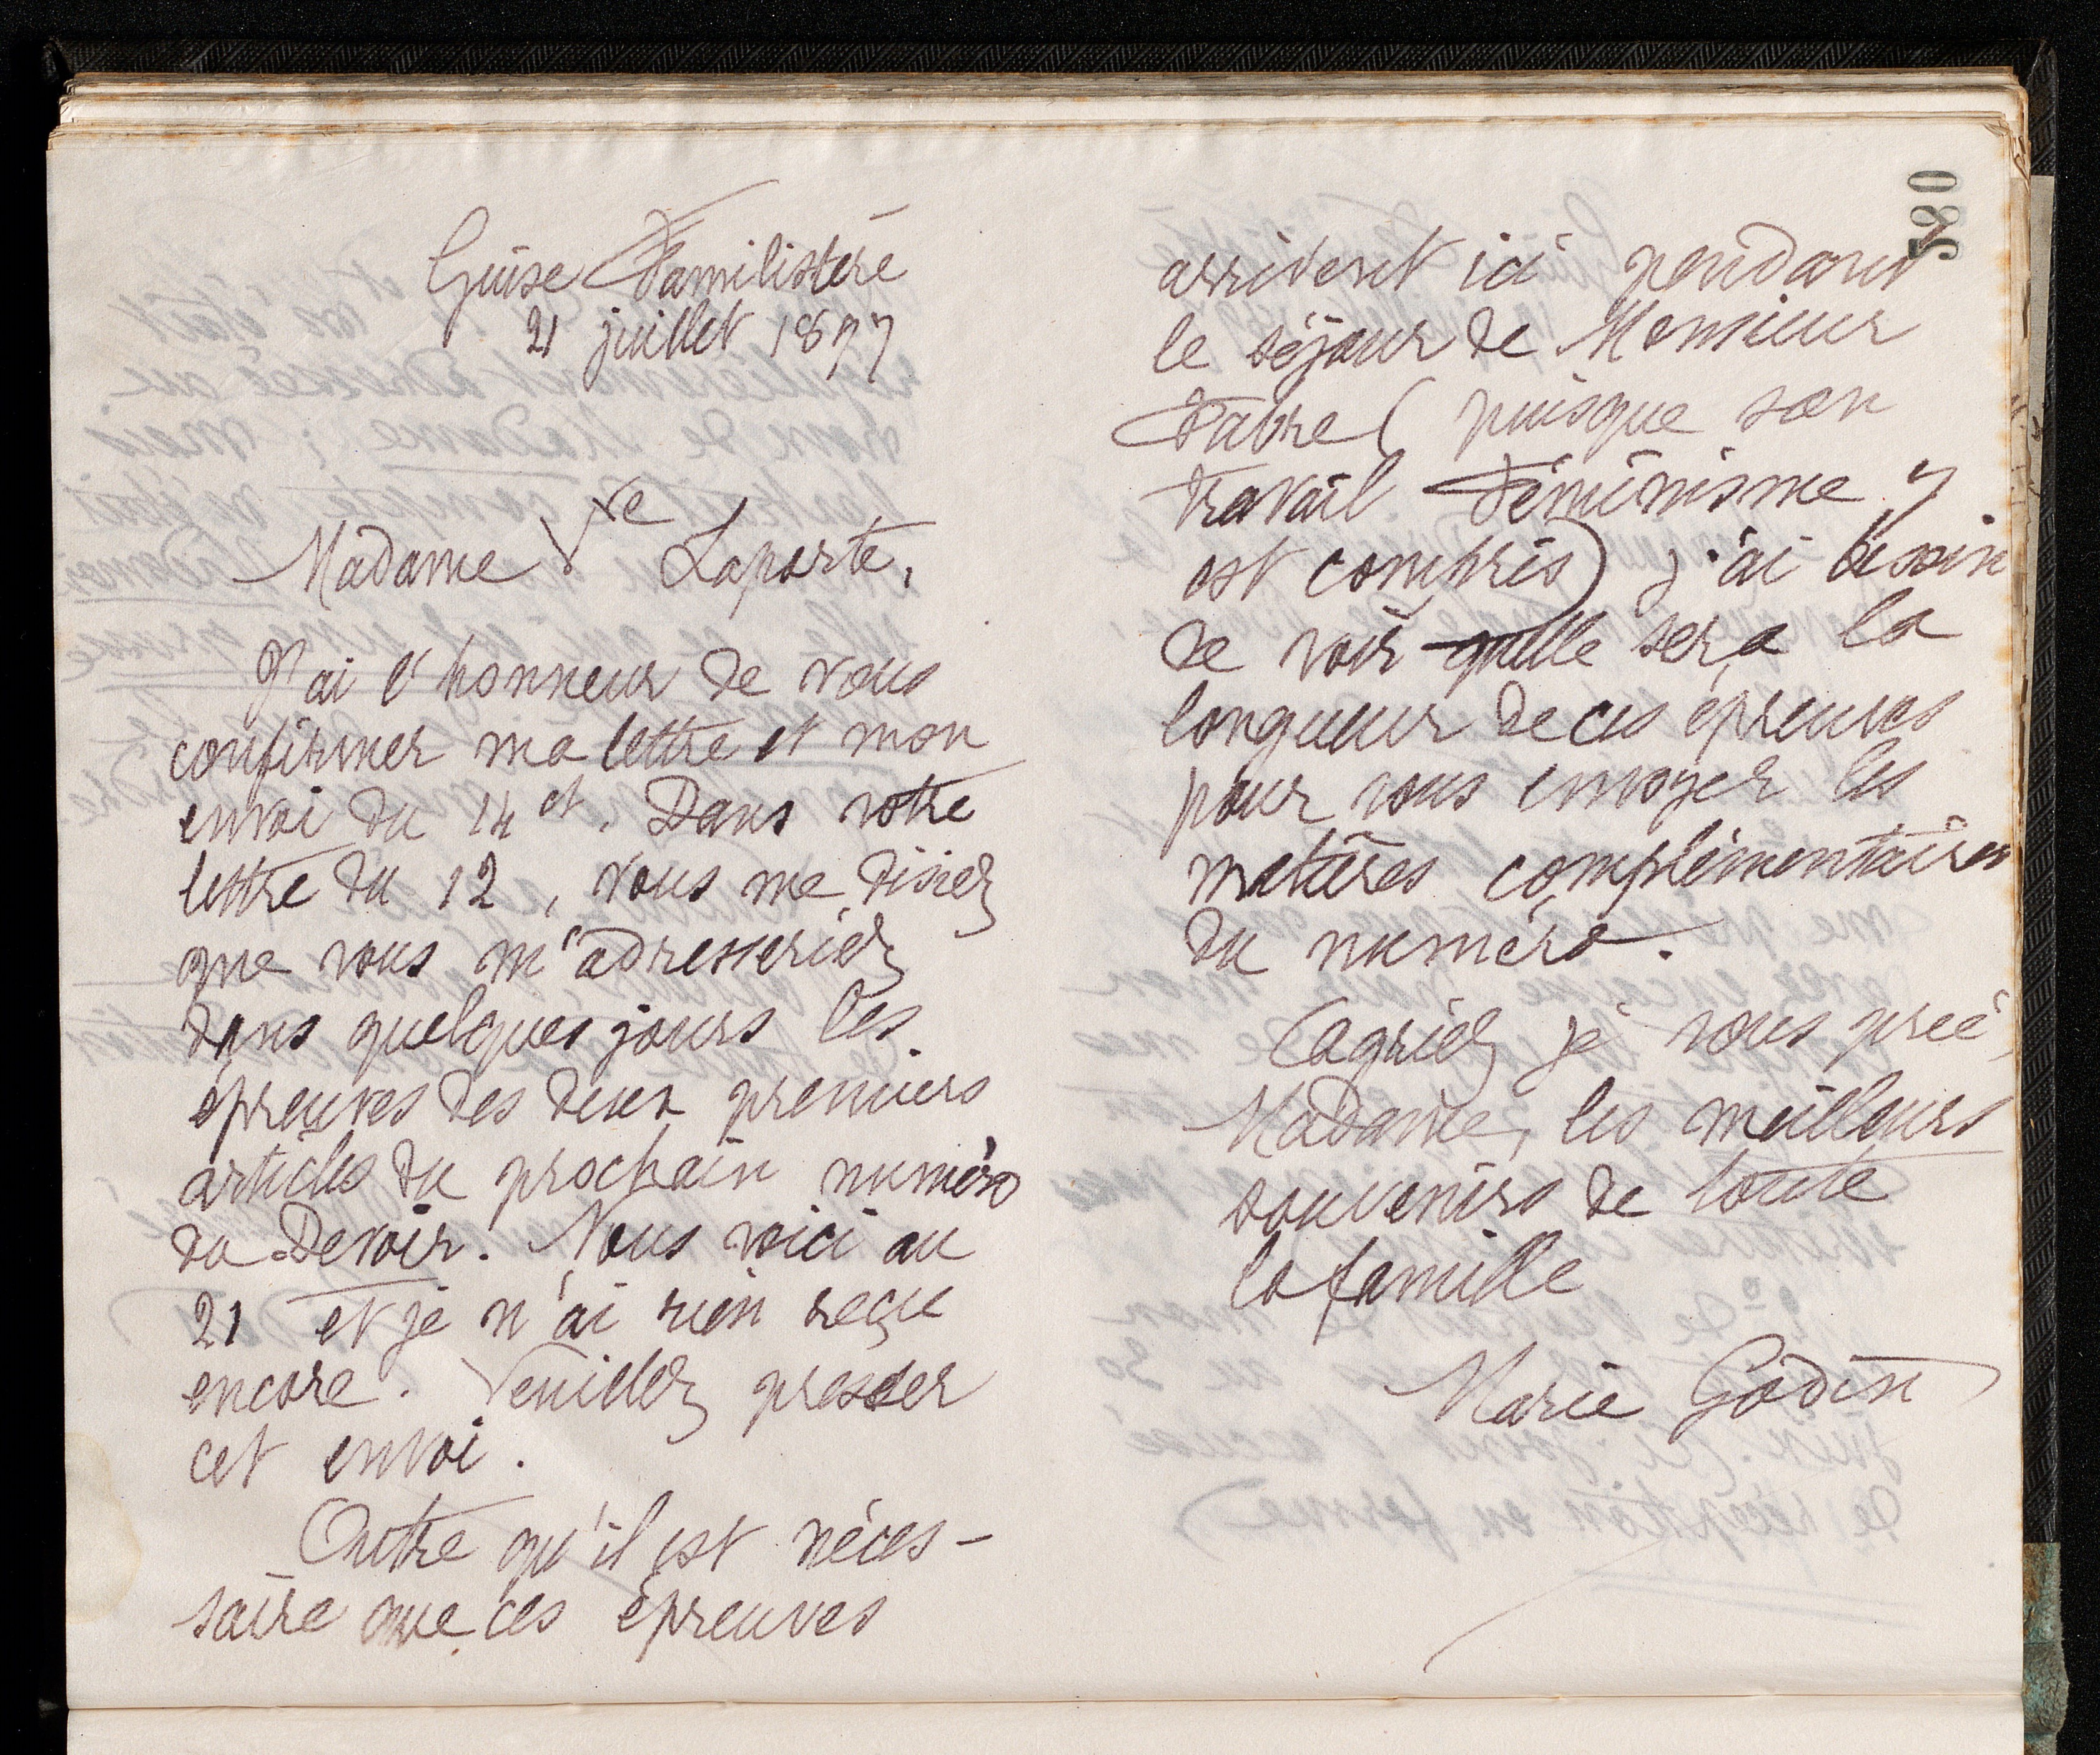 Guise Familistère
21 juillet 1897
Madame Vve Laporte,
J'ai l'honneur de vous
confirmer ma lettre et mon
envoi du 14 ct. Dans votre
lettre du 12, vous me disiez
que vous m'adresseriez
dans quelques jours les
épreuves des deux premiers
articles du prochain numéro
du Devoir. Nous voici au
21 et je n'ai rien reçu
encore. Veuillez presser
cet envoi.
Outre qu'il est néces-
saire que ces épreuves
580
arrivent ici pendant
le séjour de Monsieur
Fabre (puisque son
travail Féminisme y
est compris) j'ai besoin
de voir quelle sera la
longueur de ces épreuves
pour vous envoyer les
matières complémentaires
du numéro.
Agréez je vous prie,
Madame, les meilleurs
souvenirs de toute
la famille
Marie Godin